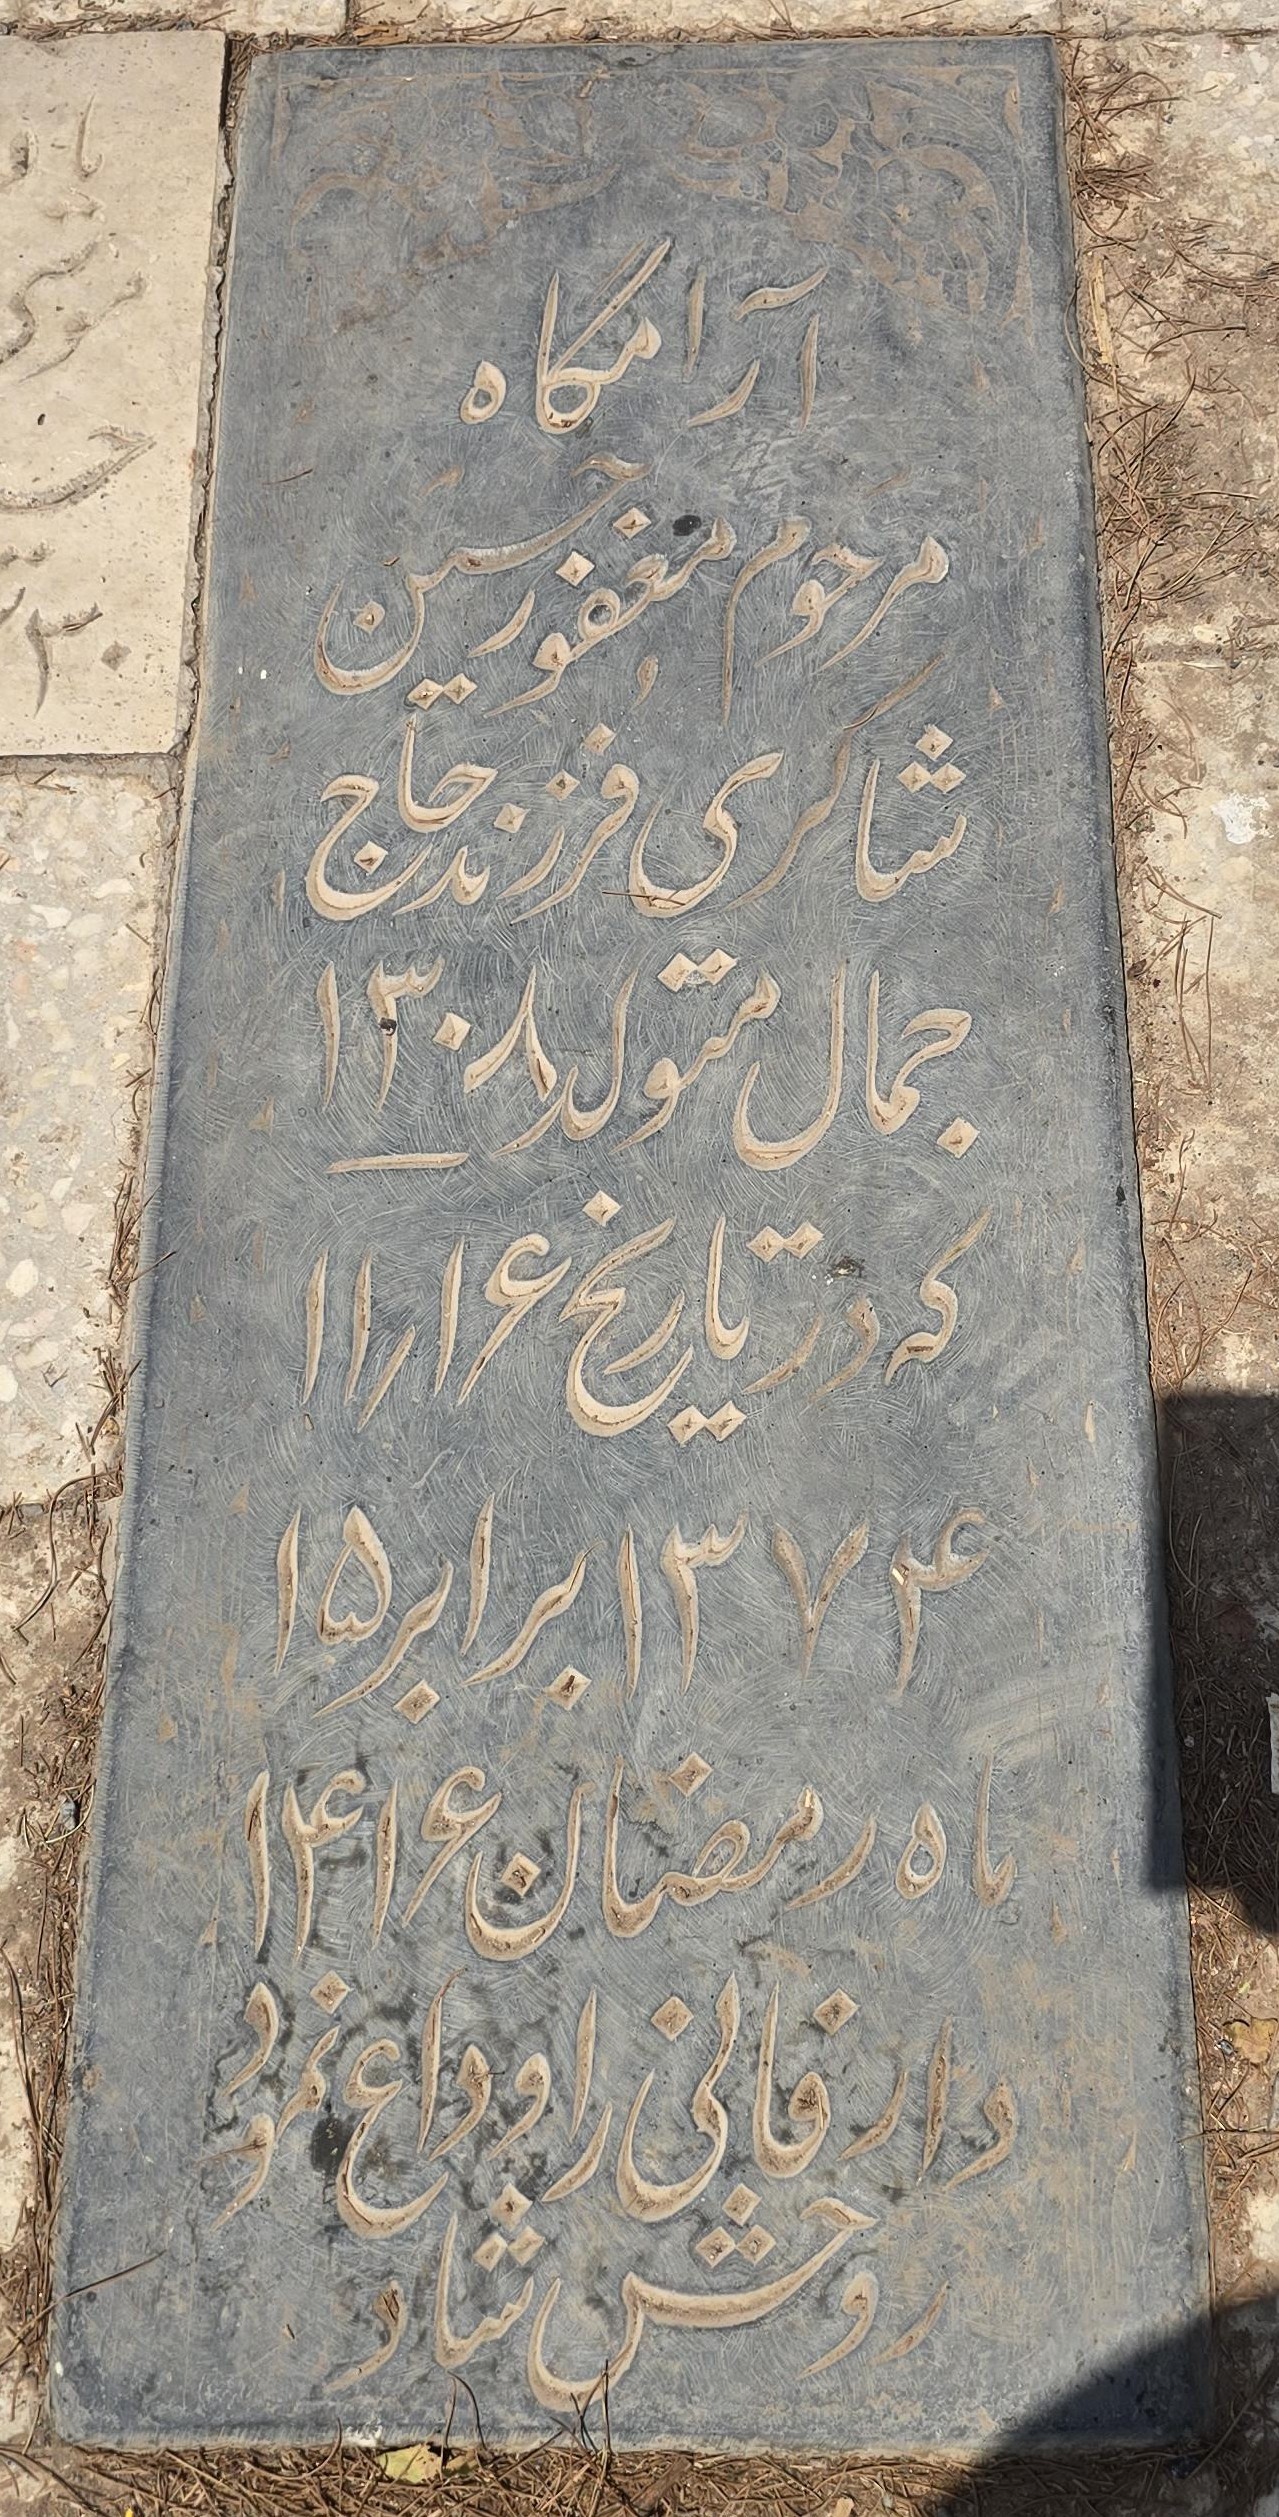 آرامگاه
مرحوم مغفور حسن
شاکری فرزند حاج
جمال متولد ۱۳۰۸
که در تاریخ ۱۱/۱۶
۱۳۷۴ برابر با ۱۵
ماه رمضان ۱۴۱۶
دار فانی را وداع نمود
روحش شاد